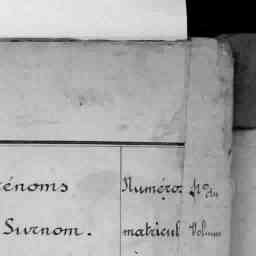 rénoms
Surnom.
Numéros
matricul
No du
Volume